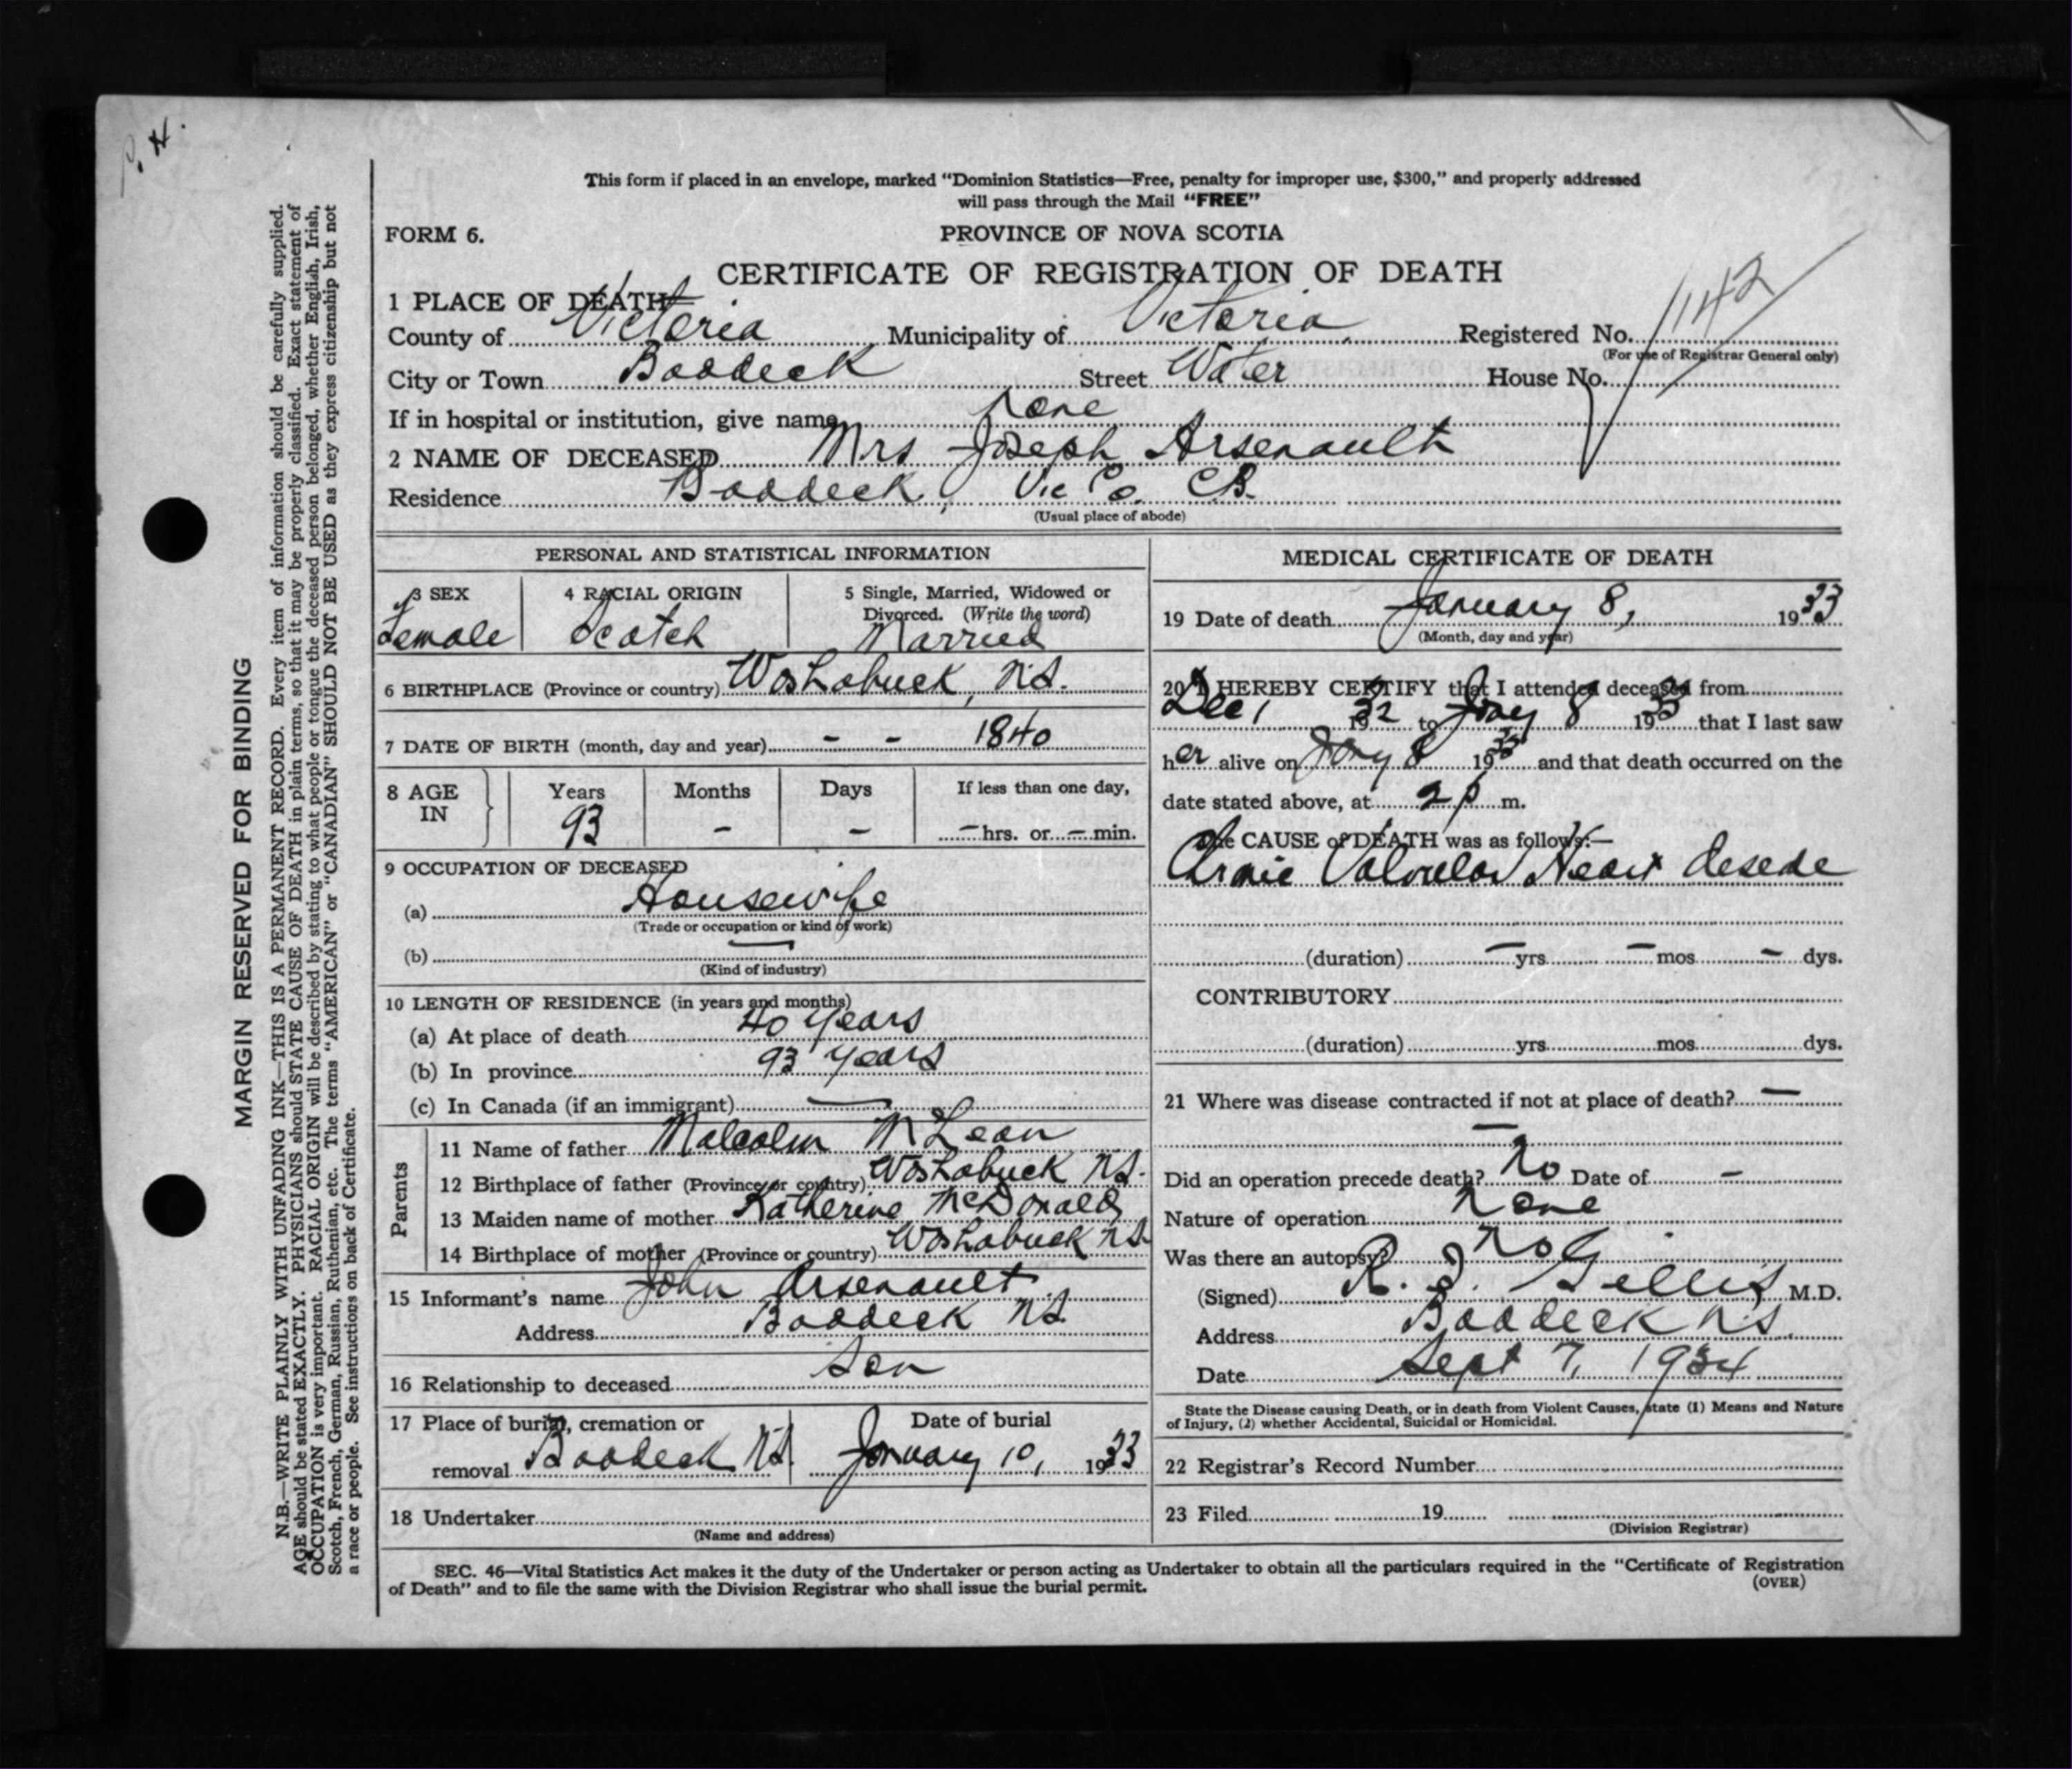 P. H.
This form if placed in an envelope, marked “Dominion Statistics—Free, penalty for improper use, $300,” and properly addressed
will pass through the Mail “FREE”
FORM 6.
PROVINCE OF NOVA SCOTIA
CERTIFICATE OF REGISTRATION OF DEATH
1 PLACE OF DEATH
County of Victoria Municipality of Victoria Registered No. 1142
(For use of Registrar General only)
City or Town Baddeck Street Water House No.
If in hospital or institution, give name none
2 NAME OF DECEASED Mrs Joseph Arsenault
Residence Baddeck, Vic Co. C.B.
(Usual place of abode)
PERSONAL AND STATISTICAL INFORMATION
3 SEX
Female
4 RACIAL ORIGIN
Scotch
5 Single, Married, Widowed or
Divorced. (Write the word)
Married
6 BIRTHPLACE (Province or country) Washabuck, N.S.
7 DATE OF BIRTH (month, day and year) – – 1840
8 AGE
IN
Years
93
Months
–
Days
–
If less than one day,
– hrs. or – min.
9 OCCUPATION OF DECEASED
(a) Housewife
(Trade or occupation or kind of work)
(b) —
(Kind of industry)
10 LENGTH OF RESIDENCE (in years and months)
(a) At place of death 40 years
(b) In province 93 years
(c) In Canada (if an immigrant) —
Parents
11 Name of father Malcolm McLean
12 Birthplace of father (Province or country) Washabuck N.S.
13 Maiden name of mother Katherine McDonald
14 Birthplace of mother (Province or country) Washabuck N.S.
15 Informant's name John Arsenault
Address Baddeck N.S.
16 Relationship to deceased Son
17 Place of burial, cremation or
removal Baddeck N.S.
Date of burial
January 10, 1933
18 Undertaker
(Name and address)
MEDICAL CERTIFICATE OF DEATH
19 Date of death January 8, 1933
(Month, day and year)
20 I HEREBY CERTIFY that I attended deceased from
Dec 1 1932 to Jany 8 1933 that I last saw
her alive on Jany 8 1933 and that death occurred on the
date stated above, at 2 p m.
The CAUSE of DEATH was as follows:—
Chronic Valvular Heart desede
(duration) – yrs – mos – dys.
CONTRIBUTORY
(duration) yrs mos dys.
21 Where was disease contracted if not at place of death? —
—
Did an operation precede death? No Date of –
Nature of operation None
Was there an autopsy? No
(Signed) Gillis M.D.
Address Baddeck N.S.
Date Sept 7, 1934
State the Disease causing Death, or in death from Violent Causes, state (1) Means and Nature
of Injury, (2) whether Accidental, Suicidal or Homicidal.
22 Registrar's Record Number
23 Filed 19
(Division Registrar)
SEC. 46—Vital Statistics Act makes it the duty of the Undertaker or person acting as Undertaker to obtain all the particulars required in the “Certificate of Registration
of Death” and to file the same with the Division Registrar who shall issue the burial permit.
(OVER)
MARGIN RESERVED FOR BINDING
N.B.—WRITE PLAINLY WITH UNFADING INK—THIS IS A PERMANENT RECORD. Every item of information should be carefully supplied.
AGE should be stated EXACTLY. PHYSICIANS should STATE CAUSE OF DEATH in plain terms, so that it may be properly classified. Exact statement of
OCCUPATION is very important. RACIAL ORIGIN will be described by stating to what people or tongue the deceased person belonged, whether English, Irish,
Scotch, French, German, Russian, Ruthenian, etc. The terms “AMERICAN” or “CANADIAN” SHOULD NOT BE USED as they express citizenship but not
a race or people. See instructions on back of Certificate.